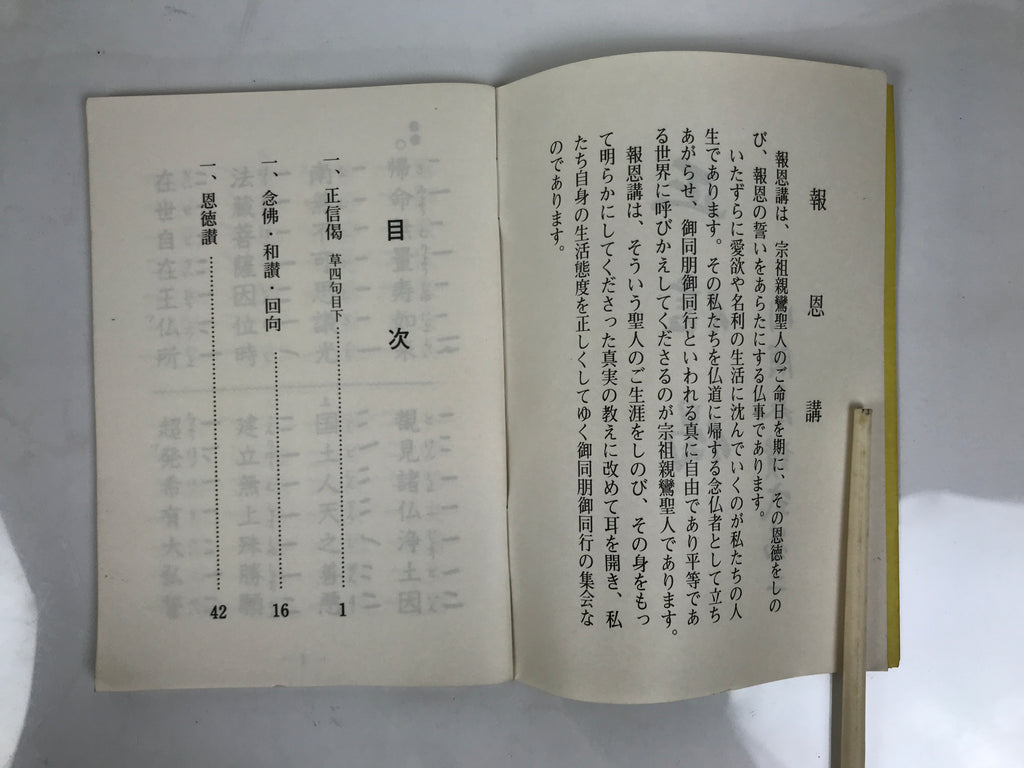 報恩講
報恩講は、宗祖親鸞聖人のご命日を期に、その恩徳をしの
び、報恩の誓いをあらたにする仏事であります。
いたずらに愛欲や名利の生活に沈んでいくのが私たちの人
生であります。その私たちを仏道に帰する念仏者として立ち
あがらせ、御同朋御同行といわれる真に自由であり平等であ
る世界に呼びかえしてくださるのが宗祖親鸞聖人であります。
報恩講は、そういう聖人のご生涯をしのび、その身をもっ
て明らかにしてくださった真実の教えに改めて耳を開き、私
たち自身の生活態度を正しくしてゆく御同朋御同行の集会な
のであります。
目次
一、正信偈 草四句目下……1
一、念佛・和讃・回向……16
一、恩徳讃……42